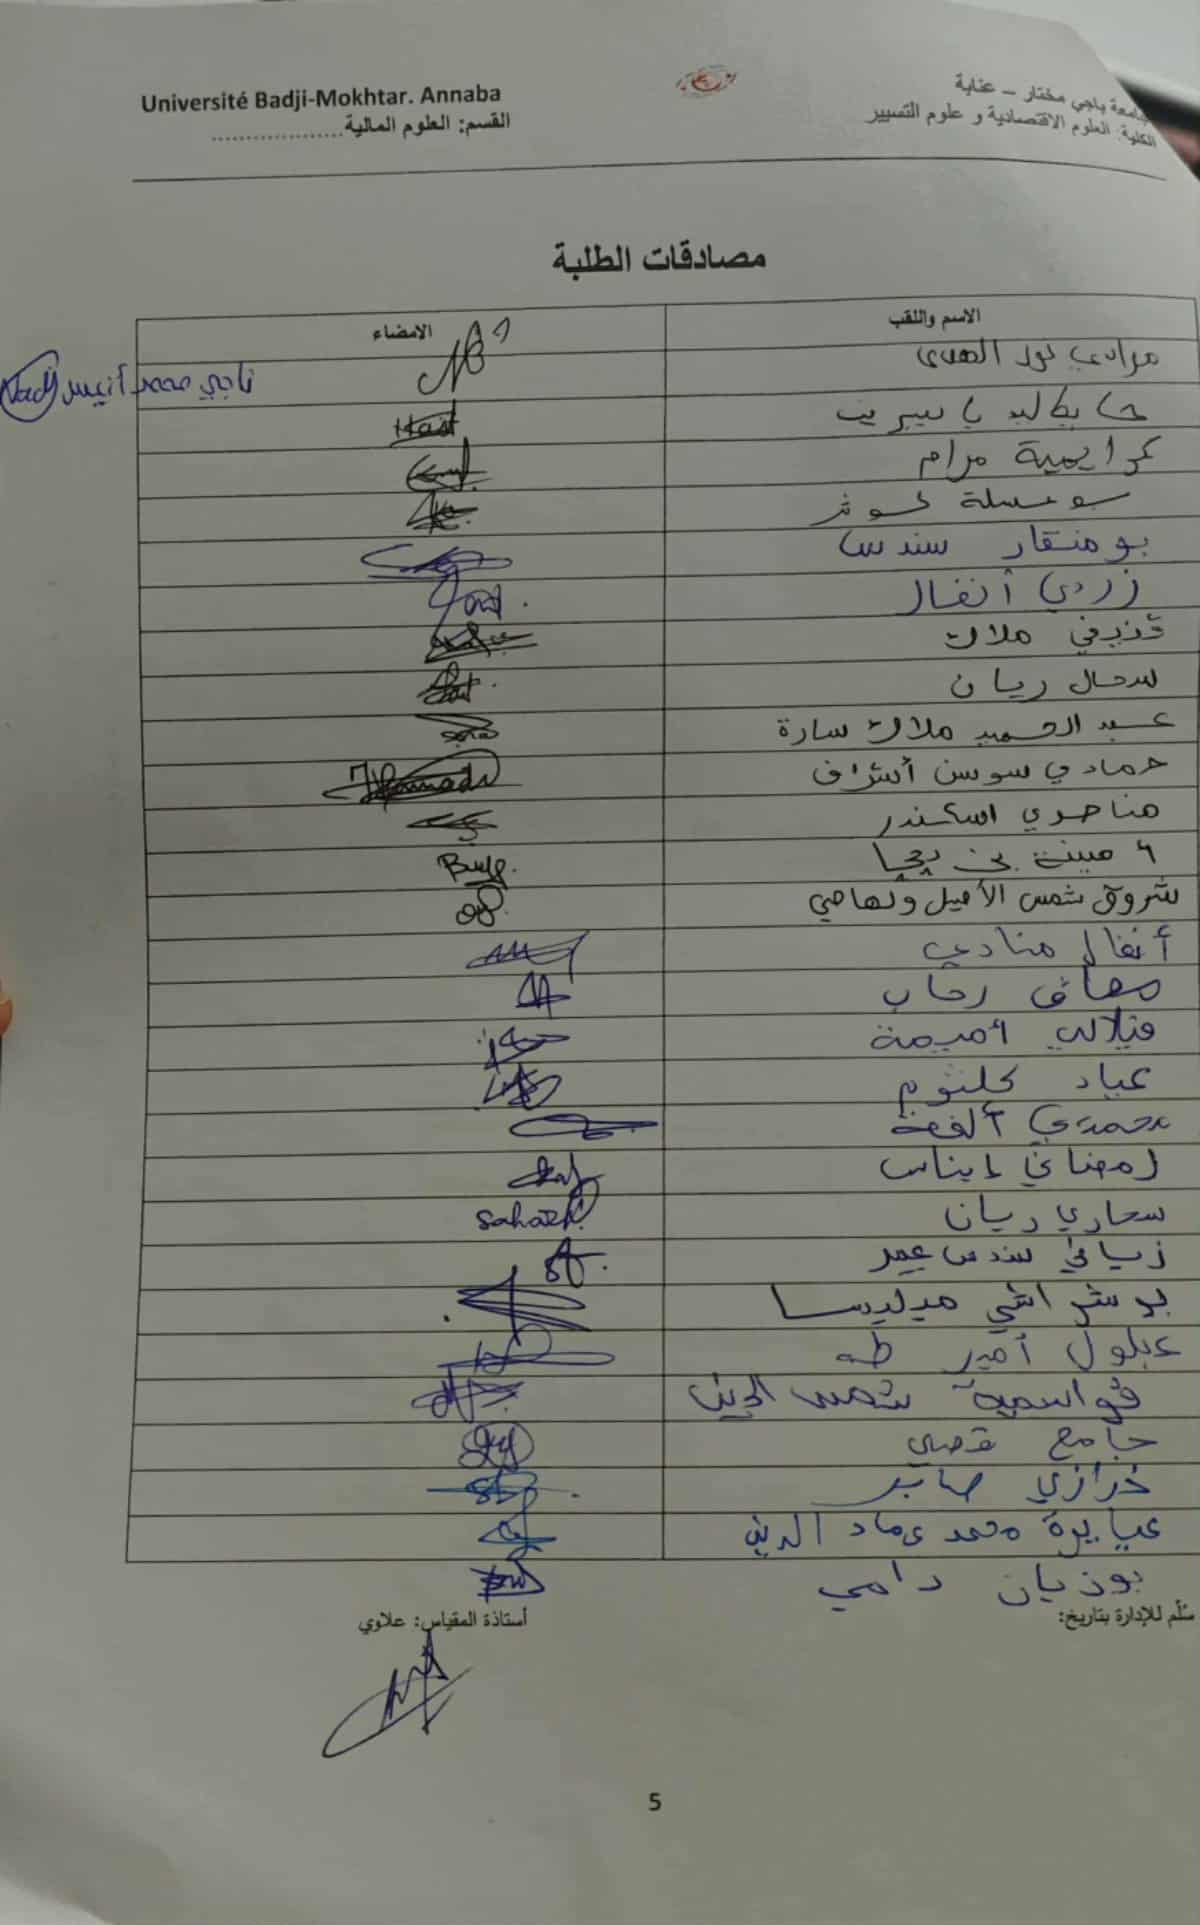 جامعة باجي مختار – عنابة
الكلية: العلوم الاقتصادية و علوم التسيير
Université Badji-Mokhtar. Annaba
القسم: العلوم المالية...................
مصادقات الطلبة
الاسم واللقب الامضاء
مرادي نور الهدى
ناجي محمد أنيس Nadji
ياسيرين
كرايمية مرام
بوعسلة كوثر
بومنقار سندس
زردي أنفال
قذيفي ملاك
سحال ريان
عبد الحميد ملاك سارة
حمادي سوسن أشراف Hamadi
مناصري اسكندر
أمينة بن يحيا
شروق شمس الأصيل ولهاصي
أنفال منادي
معافى رحاب
فيلالي أميمة
عباد كلثوم
محمدي ألفة
رمضاني إيناس
سحاري ريان Sahari
زياني سندس عمر
بوشراشي ميليسا
عبلول أمير طه
قواسمية شمس الدين
جامع قصي
خرازي صابر
عيايرة محمد عماد الدين
بوزيان رامي
سُلّم للإدارة بتاريخ:
أستاذة المقياس: علاوي
5